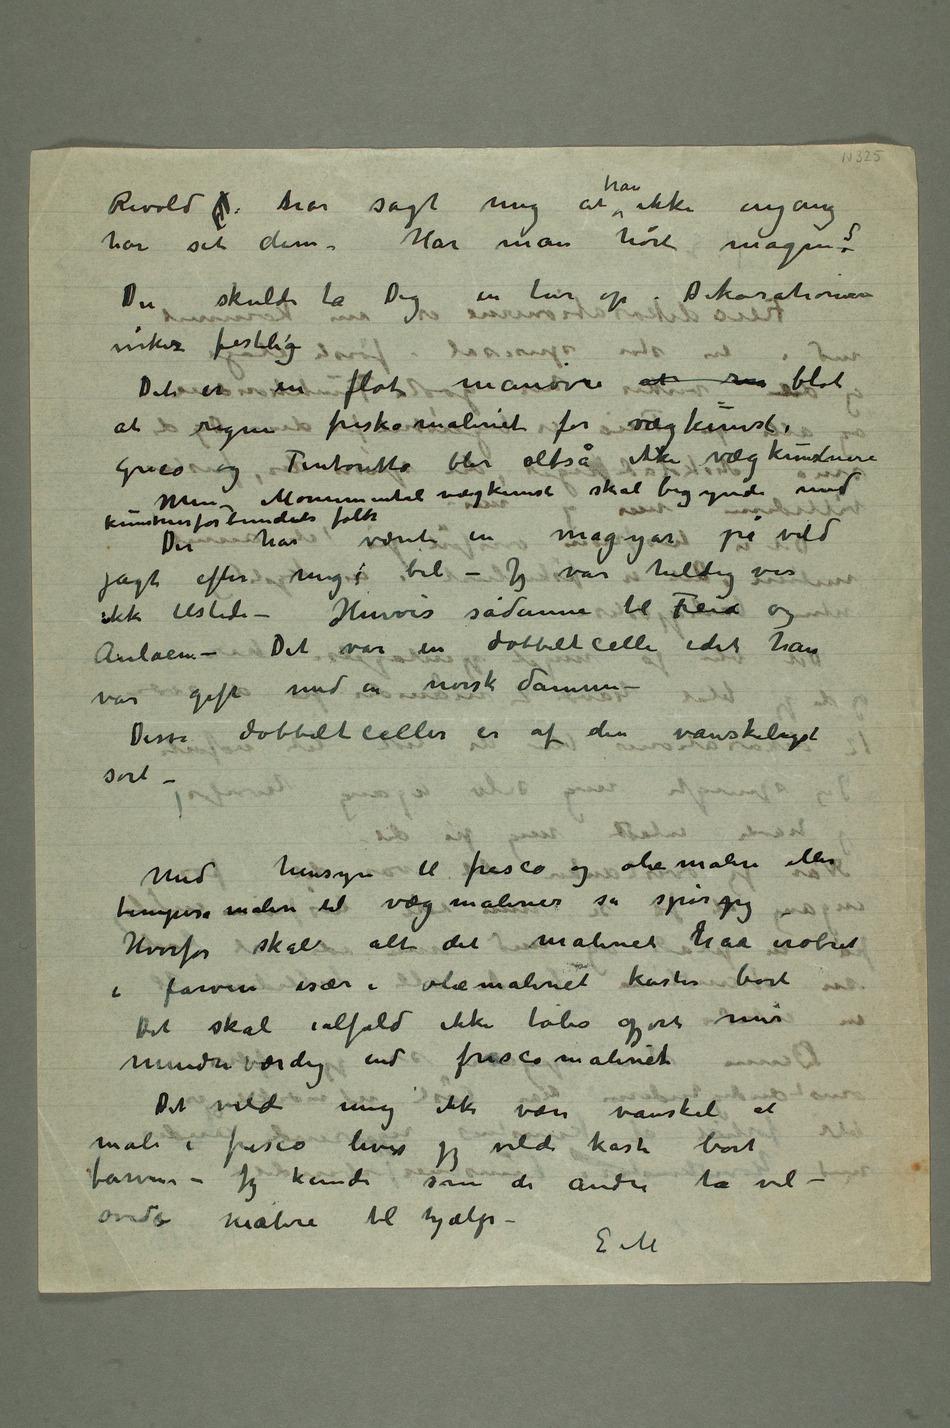 N 325
Revold har sagt mig at han ikke engang
har set dem – Har man hørt magen?
Du skulde ta Dig en tur op. Dekorationerne
virker festlig
Det er en flot manøvre at blot
at regne freskomaleriet for vægkunst.
Greco og Tintoretto blir altså ikke vægkunstnere
Men Monumental vægkunst skal begynde med
kunstnerforbundets folk
Der har været en magyar på vild
jagt efter mig i bil – Jeg var heldigvis
ikke tilstede – Henvis sådanne til og
Aulaen – Det var en dobbeltcelle idet han
var gift med en norsk damme –
Disse dobbeltceller er af den vanskeligst
sort –
Med hensyn til fresco og oliemaleri eller
tempera maleri til vægmalerier så spør jeg
Hvorfor skal alt det maleriet har erobret
i farven især i oliemaleriet kastes bort
Det skal ialfald ikke tåbes gjort mer
mindreværdig end frescomaleriet
Det vilde mig ikke være vanskel at
male i fresco hvis jeg vilde kaste bort
farven – Jeg kunde som de andre ta vel-
øvede malere til hjælp –
E M